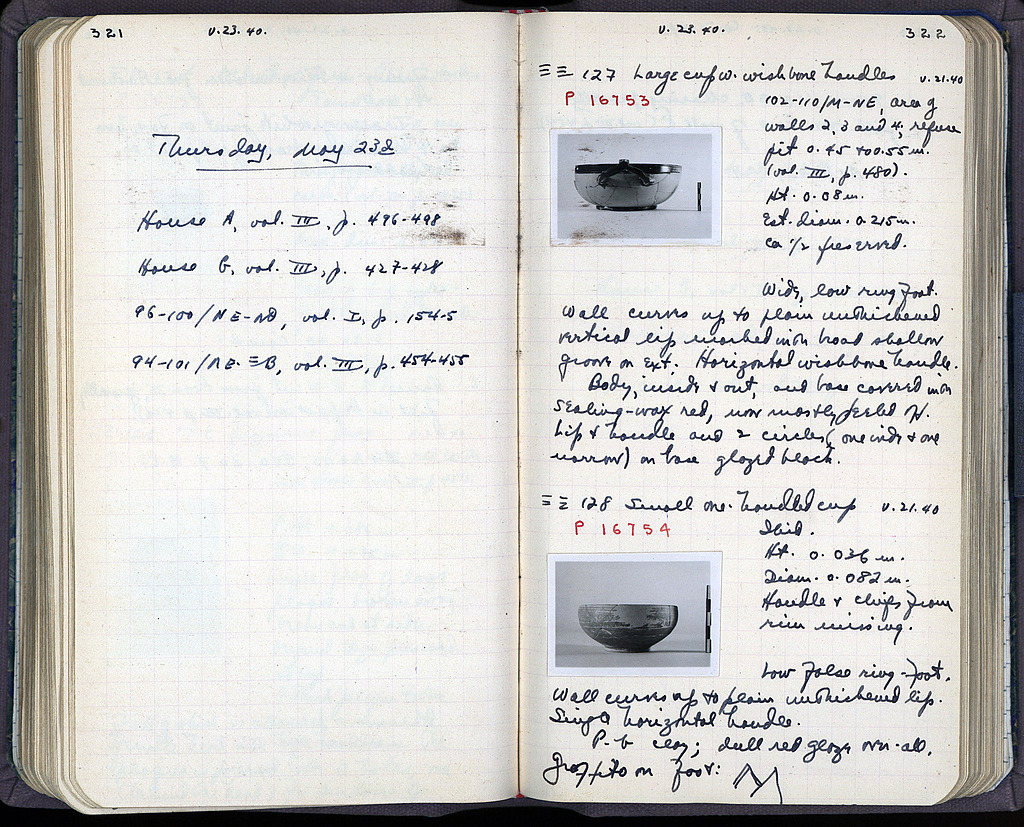 321
V. 23. 40.
Thursday, May 23d
House A, vol. III, p. 496-498
House G, vol. III, p. 427-428
96-100/ΝΕ-ΝΘ, vol. I, p. 154-5
94-101/ΛΕ-ΞΒ, vol. III, p. 454-455
V. 23. 40.
322
ΞΞ 127 Large cup w. wishbone handles V.21.40
P 16753
102-110/Μ-ΝΕ, area of
walls 2, 3 and 4, refuse
pit 0.45 to 0.55 m.
(vol. III, p. 480).
Ht. 0.08 m.
Est. diam. 0.215 m.
ca 1/2 preserved.
Wide, low ring foot.
Wall curves up to plain unthickened
vertical lip marked in broad shallow
groove on ext. Horizontal wishbone handle.
Body, inside & out, and base covered in
sealing-wax red, now mostly peeled off.
Lip & handle and 2 circles (one wide & one
narrow) on base glazed black.
ΞΞ 128 Small one-handled cup V.21.40
P 16754
Ibid.
Ht. 0.036 m.
Diam. 0.082 m.
Handle & chips from
rim missing.
Low false ring-foot.
Wall curves up to plain unthickened lip.
Single horizontal handle.
P-b clay; dull red glaze over-all.
Graffito on foot: